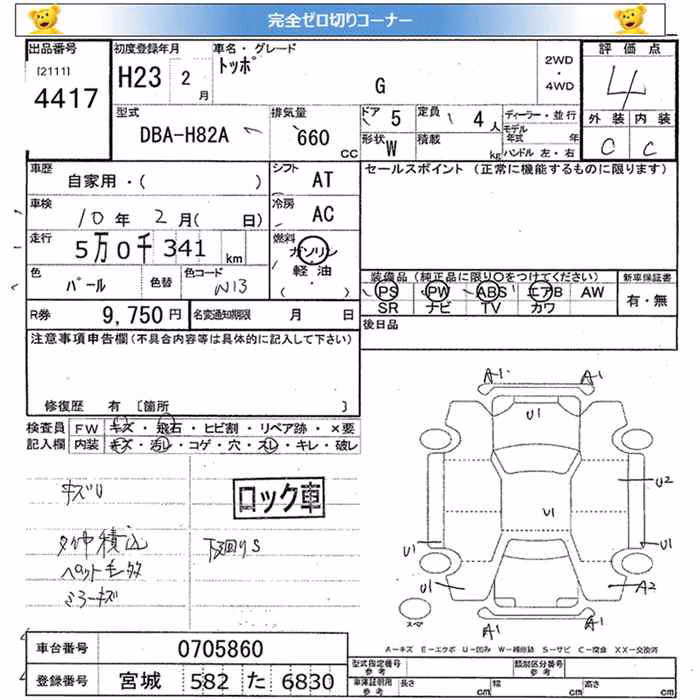 完全ゼロ切りコーナー
出品番号 初度登録年月 車名・グレード 評価点
[2111] H23 2月 トッポ G 2WD・4WD 4
4417
型式 排気量 ドア 5 定員 4人 ディーラー・並行 外装 内装
DBA-H82A 660 CC 形状 W 積載 kg モデル年式 年 C C
ハンドル 左・右
車歴 自家用・( ) シフト AT セールスポイント (正常に機能するものに限ります)
車検 10年 2月( 日) 冷房 AC
走行 5万0千341 km 燃料 ガソリン
軽油
( ・ )
色 パール 色替 色コード W13 装備品(純正品に限り○をつけてください) 新車保証書
PS PW ABS エアB AW 有・無
SR ナビ TV カワ
R券 9,750円 名変通知期限 月 日 後日品
注意事項申告欄(不具合内容等は具体的に記入して下さい)
修復歴 有 [箇所 ]
検査員 FW キズ・飛石・ヒビ割・リペア跡・×要
記入欄 内装 キズ・汚レ・コゲ・穴・スレ・キレ・破レ
キズU ロック車
積込 下廻りS
ミラーキズ
A1 A1
U1
U2
U1
U1 U1
U1 A2
スペア
A1 A1
A-キズ E-エクボ U-凹み W-補修跡 S-サビ C-腐食 XX-交換済
車台番号 0705860
登録番号 宮城 582 た 6830
型式指定番号 参考 類別区分番号 参考
車庫証明用 参考 長さ cm 幅 cm 高さ cm